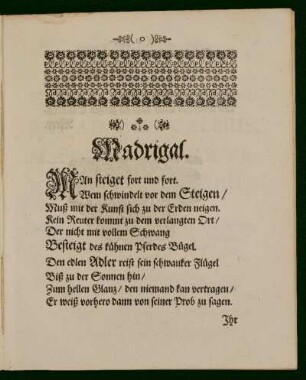 ( o )
Madrigal.
MAn steiget fort und fort.
Wem schwindelt vor dem Steigen/
Muß mit der Kunst sich zu der Erden neigen.
Kein Reuter kommt zu dem verlangten Ort/
Der nicht mit vollem Schwang
Besteigt des kühnen Pferdes Bügel.
Den edlen Adler reist sein schwancker Flügel
Biß zu der Sonnen hin/
Zum hellen Glantz/ den niemand kan vertragen/
Er weiß vorhero dann von seiner Prob zu sagen.
Ihr